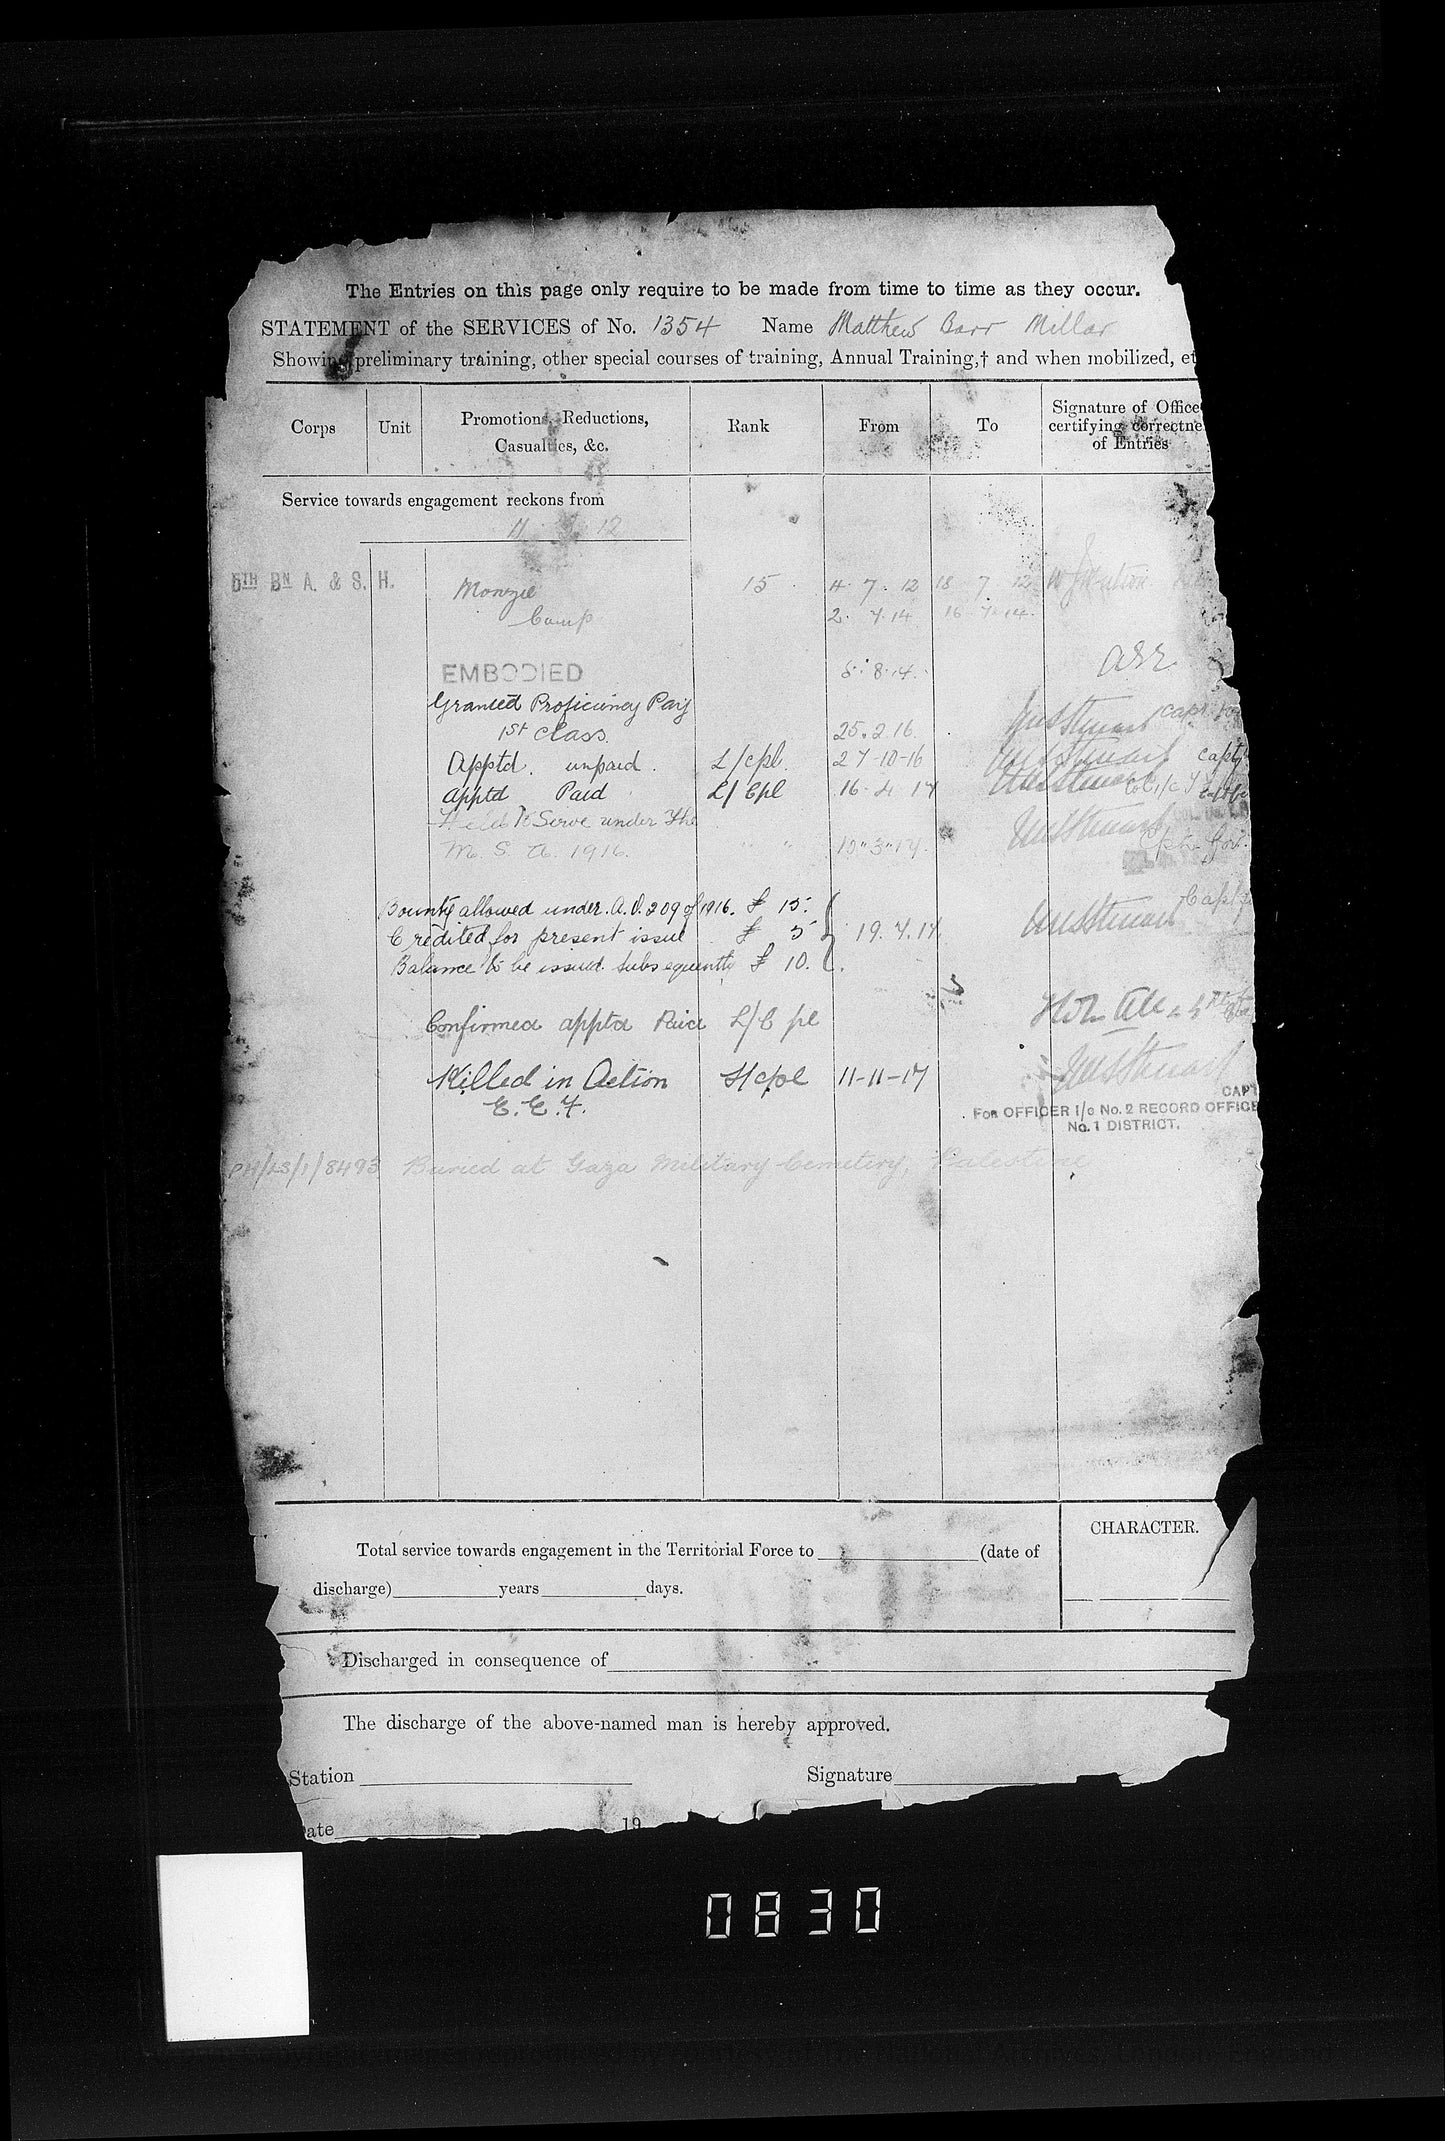 The Entries on this page only require to be made from time to time as they occur.
STATEMENT of the SERVICES of No. 1354 Name Matthew Barr Millar
Showing preliminary training, other special courses of training, Annual Training,† and when mobilized, et
Corps Unit Promotions, Reductions, Casualties, &c. Rank From To Signature of Office certifying correctne of Entries
Service towards engagement reckons from
11 12
5TH BN A. & S. H. Monzie 15 4. 7. 12 18 7 12
Camp 2. 7.14 16.7.14.
EMBODIED 5.8.14.
Granted Proficiency Pay
1st Class. 25.2.16.
Apptd. unpaid. L/cpl. 27-10-16 Capt
Apptd Paid L/Cpl 16.4.17
Held to Serve under The
M. S. A. 1916. " "
Bounty allowed under. A.O. 209 of 1916. £ 15.
Credited for present issue £ 5 19.4.17.
Balance to be issued subsequently £ 10.
Confirmed apptd Paid L/Cpl
Killed in Action L/cpl 11-11-17
E.E.F.
CAPT
FOR OFFICER I/c No. 2 RECORD OFFICE
No. 1 DISTRICT.
Buried at Gaza Military Cemetery, Palestine
CHARACTER.
Total service towards engagement in the Territorial Force to (date of
discharge) years days.
Discharged in consequence of
The discharge of the above-named man is hereby approved.
Station Signature
ate 19
0830